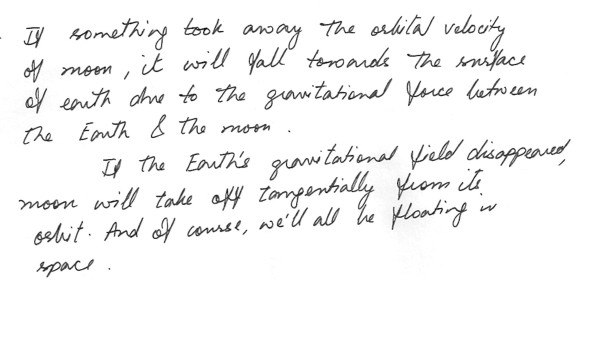 If something took away the orbital velocity
of moon, it will fall towards the surface
of earth due to the gravitational force between
the Earth & the moon.
If the Earth's gravitational field disappeared,
moon will take off tangentially from its
orbit. And of course, we'll all be floating in
space.